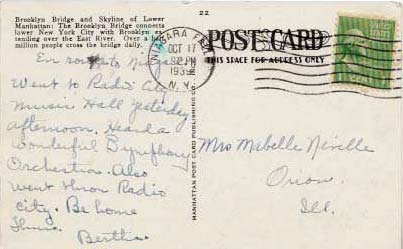 Brooklyn Bridge and Skyline of Lower
Manhattan: The Brooklyn Bridge connects
lower New York City with Brooklyn ex-
tending over the East River. Over a
million people cross the bridge daily.
En route to
Went to Radio City
Music Hall yesterday
afternoon. Heard a
wonderful Symphony
Orchestra. Also
went thron Radio
City. Be home
Thurs.
Bertha.
MANHATTAN POST CARD PUBLISHING CO.
22
NIAGARA FALLS
OCT 17
PM
1939
N.Y.
POST CARD
THIS SPACE FOR ADDRESS ONLY
Mrs Mabelle Neville
Orion,
Ill.